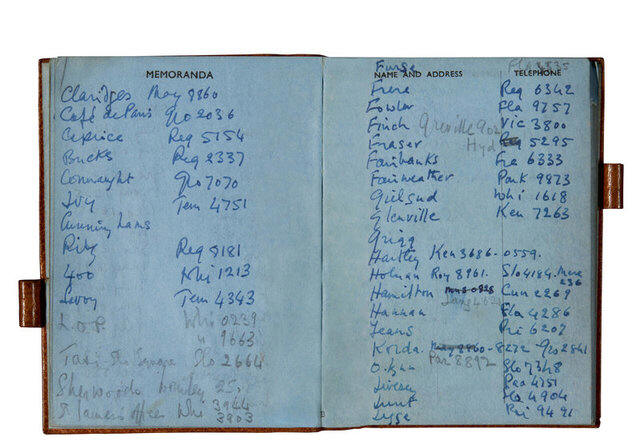 MEMORANDA
Claridges May 8860
Café de Paris Gro 2036
Caprice Reg 5154
Bucks Reg 2337
Connaught Gro 7070
Ivy Tem 4751
Cunninghams
Ritz Reg 8181
400 Whi 1213
Savoy Tem 4343
L.O.P. Whi 0239
" 9663
Taxi Slo 2664
Sherwoods 25
St James's Whi 3944
3903
NAME AND ADDRESS TELEPHONE
Furse Fla 8835
Frere Reg 6342
Fowler Fla 9757
Finch Greville 902 Vic 3800
Fraser Hyd 5295
Fairbanks Fre 6333
Fairweather Park 9873
Guilgud Whi 1618
Glenville Ken 7263
Grigg
Hartley Ken 3686-0559.
Holman Roy 8961. Slo 4184.
236
Hamilton Cun 2269
Hannan Fla 4286
Jeans Pri 6207
Korda 8272 Gro 2841
Par 8892
Slo 7348
Livesey 4751
Lunt Fla 4904
Pri 9491